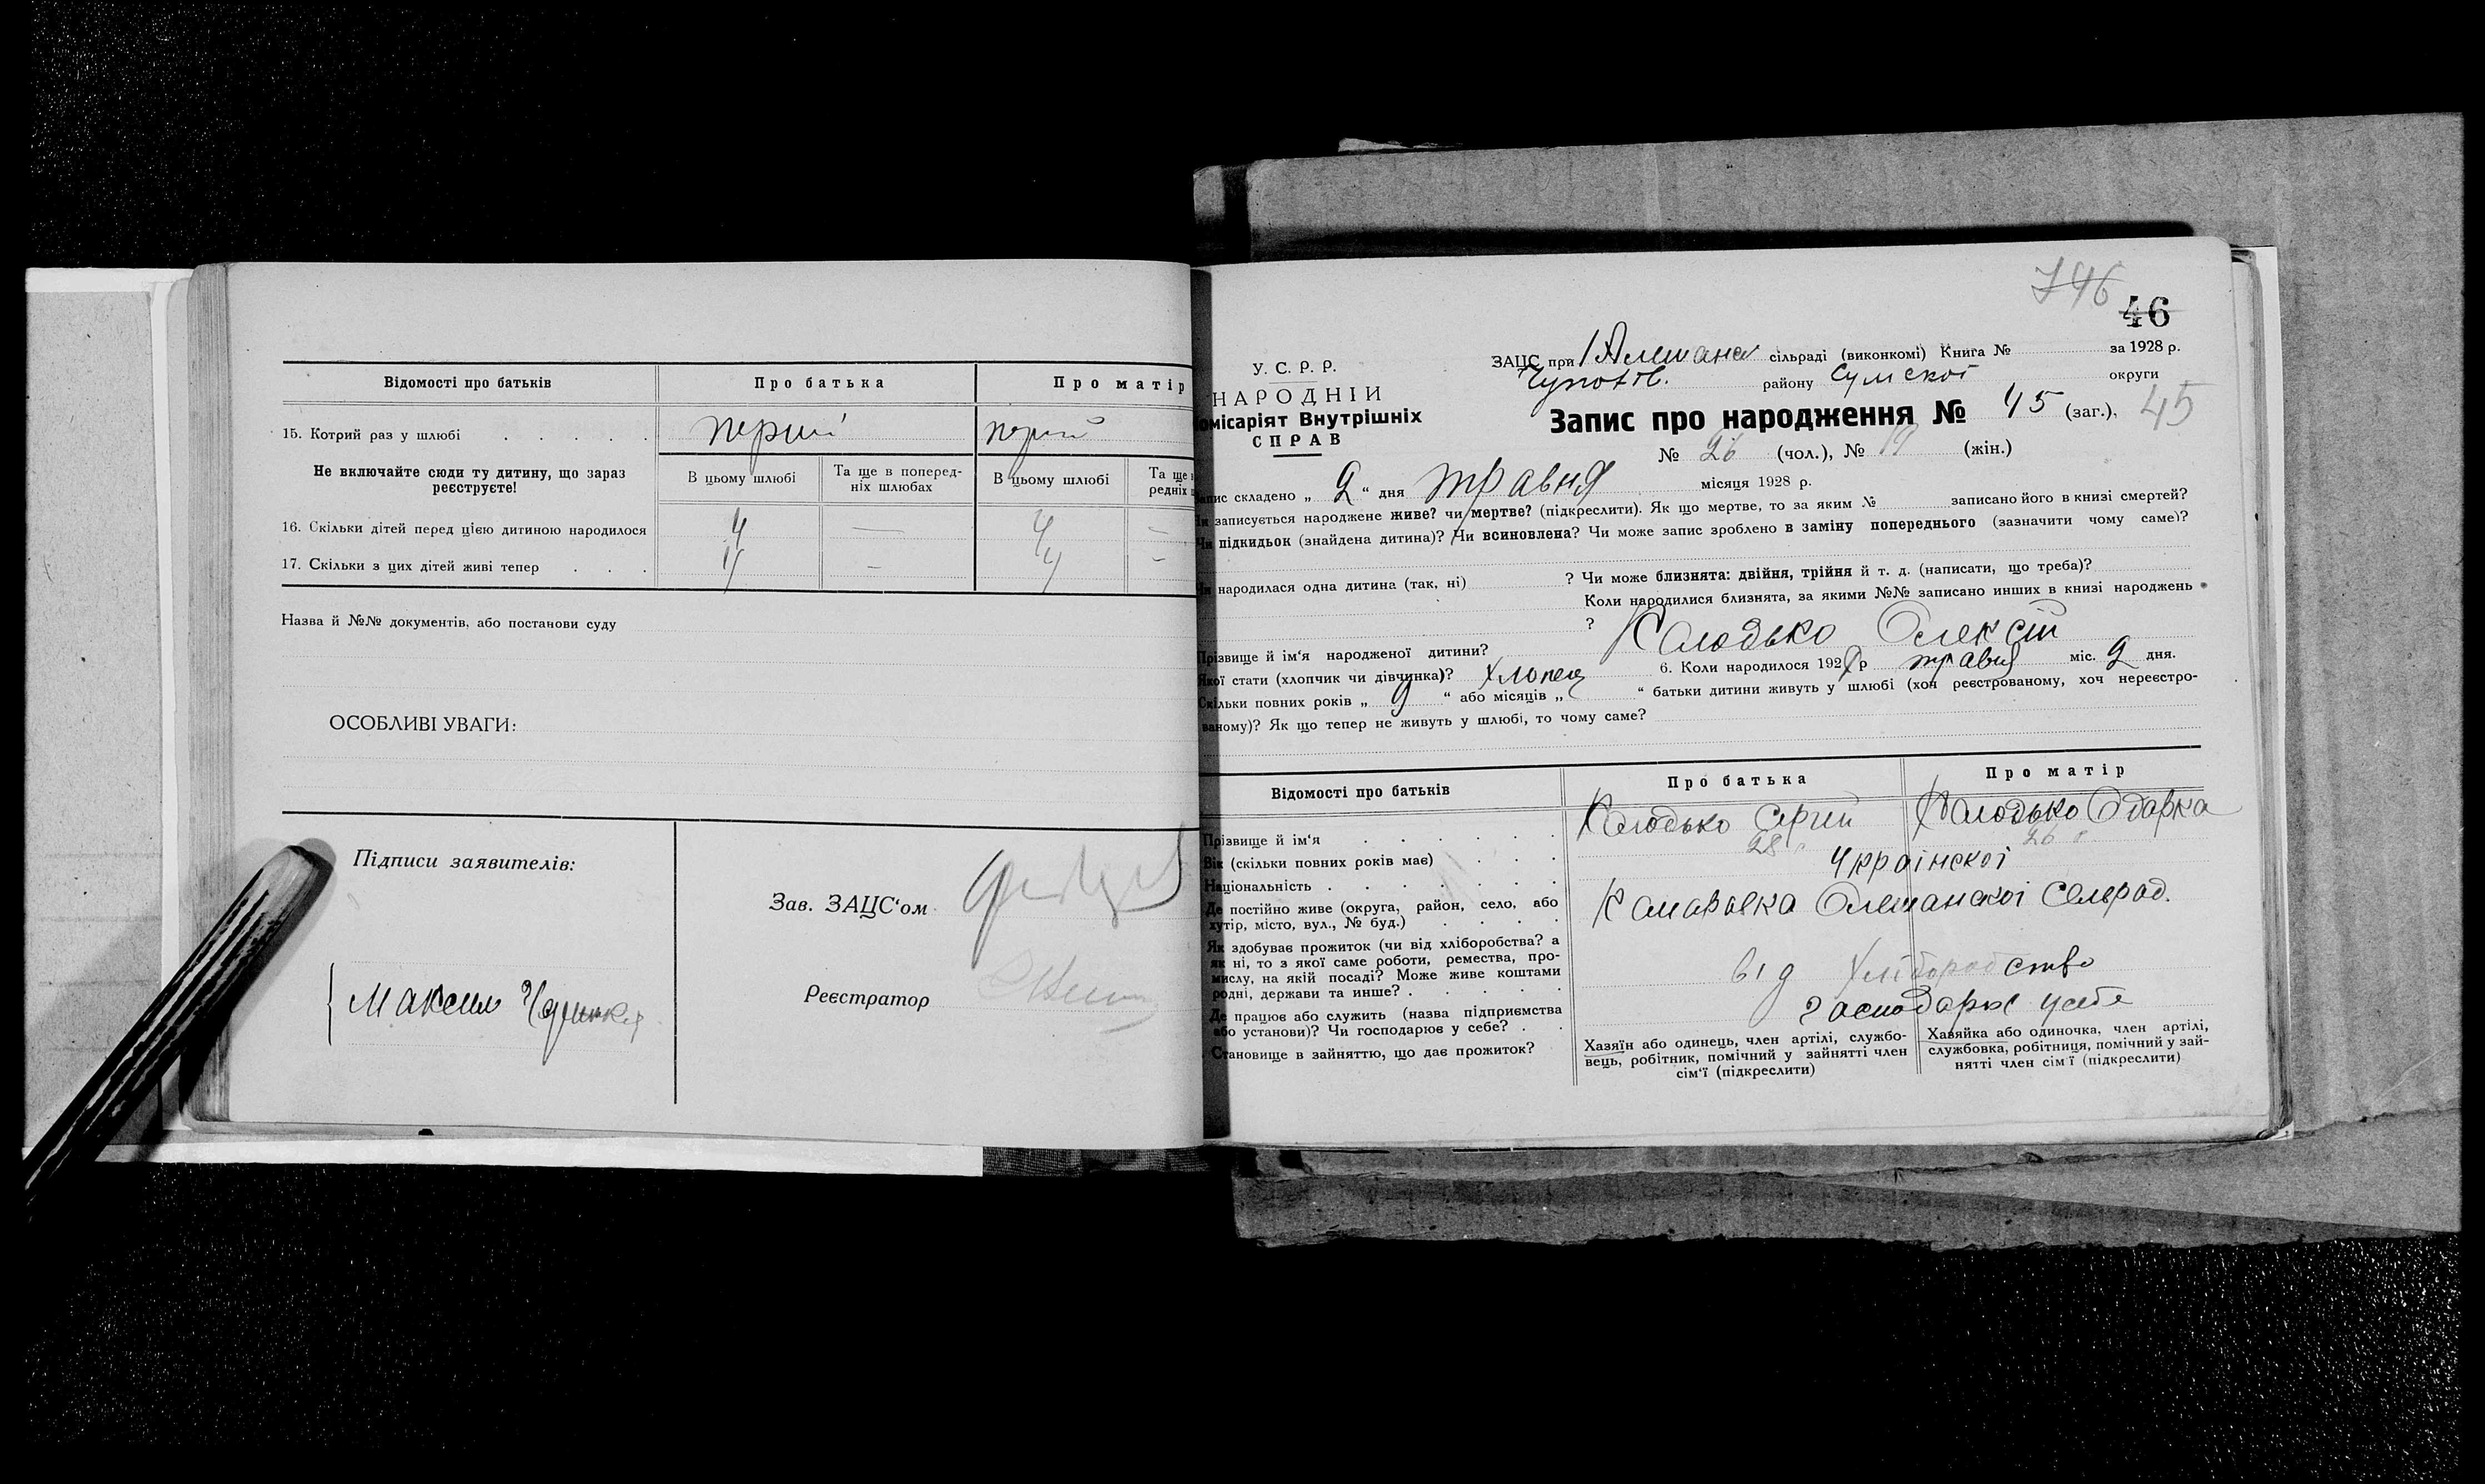 Відомості про батьків
Про батька
Про матір
15. Котрий раз у шлюбі
перший
перший
Не включайте сюди ту дитину, що зараз реєструєте!
В цьому шлюбі
Та ще в поперед-
ніх шлюбах
В цьому шлюбі
Та ще в
редніх
16. Скільки дітей перед цією дитиною народилося
4 — 4 —
17. Скільки з цих дітей живі тепер
4 — 4 —
Назва й №№ документів, або постанови суду
ОСОБЛИВІ УВАГИ:
Підписи заявителів:
Максим
Зав. ЗАЦС'ом
Реєстратор
746
46
У. С. Р. Р.
НАРОДНІЙ
омісаріят Внутрішніх
СПРАВ
ЗАЦС при сільраді (виконкомі) Книга № за 1928 р.
району Сумскої округи
Запис про народження № 45 (заг.), 45
№ 26 (чол.), № 19 (жін.)
Запис складено „ 2 “ дня травня місяця 1928 р.
Чи записується народжене живе? чи мертве? (підкреслити). Як що мертве, то за яким № записано його в книзі смертей?
Чи підкидьок (знайдена дитина)? Чи всиновлена? Чи може запис зроблено в заміну попереднього (зазначити чому саме)?
Чи народилася одна дитина (так, ні) ? Чи може близнята: двійня, трійня й т. д. (написати, що треба)?
Коли народилися близнята, за якими №№ записано инших в книзі народжень
?
Прізвище й ім'я народженої дитини? Колодько Олексій
Якої стати (хлопчик чи дівчинка)? хлопец 6. Коли народилося 1928 р травня міс. 2 дня.
Скільки повних років „ 9 “ або місяців „ “ батьки дитини живуть у шлюбі (хоч реєстрованому, хоч нереєстро-
ваному)? Як що тепер не живуть у шлюбі, то чому саме?
Відомості про батьків
Про батька
Про матір
Прізвище й ім'я
Колодько Сергій
Колодько Одарка
Вік (скільки повних років має)
28
26
Національність
Українскої
Де постійно живе (округа, район, село, або
хутір, місто, вул., № буд.)
Олешанскої Сельрад.
Як здобуває прожиток (чи від хліборобства? а
як ні, то з якої саме роботи, ремества, про-
мислу, на якій посаді? Може живе коштами
родні, держави та инше?
від хліборобство
Де працює або служить (назва підприємства
або установи)? Чи господарює у себе?
Становище в зайняттю, що дає прожиток?
Хазяїн або одинець, член артілі, службо-
вець, робітник, помічний у зайнятті член
сім'ї (підкреслити)
Хазяйка або одиночка, член артілі,
службовка, робітниця, помічний у зай-
нятті член сім'ї (підкреслити)